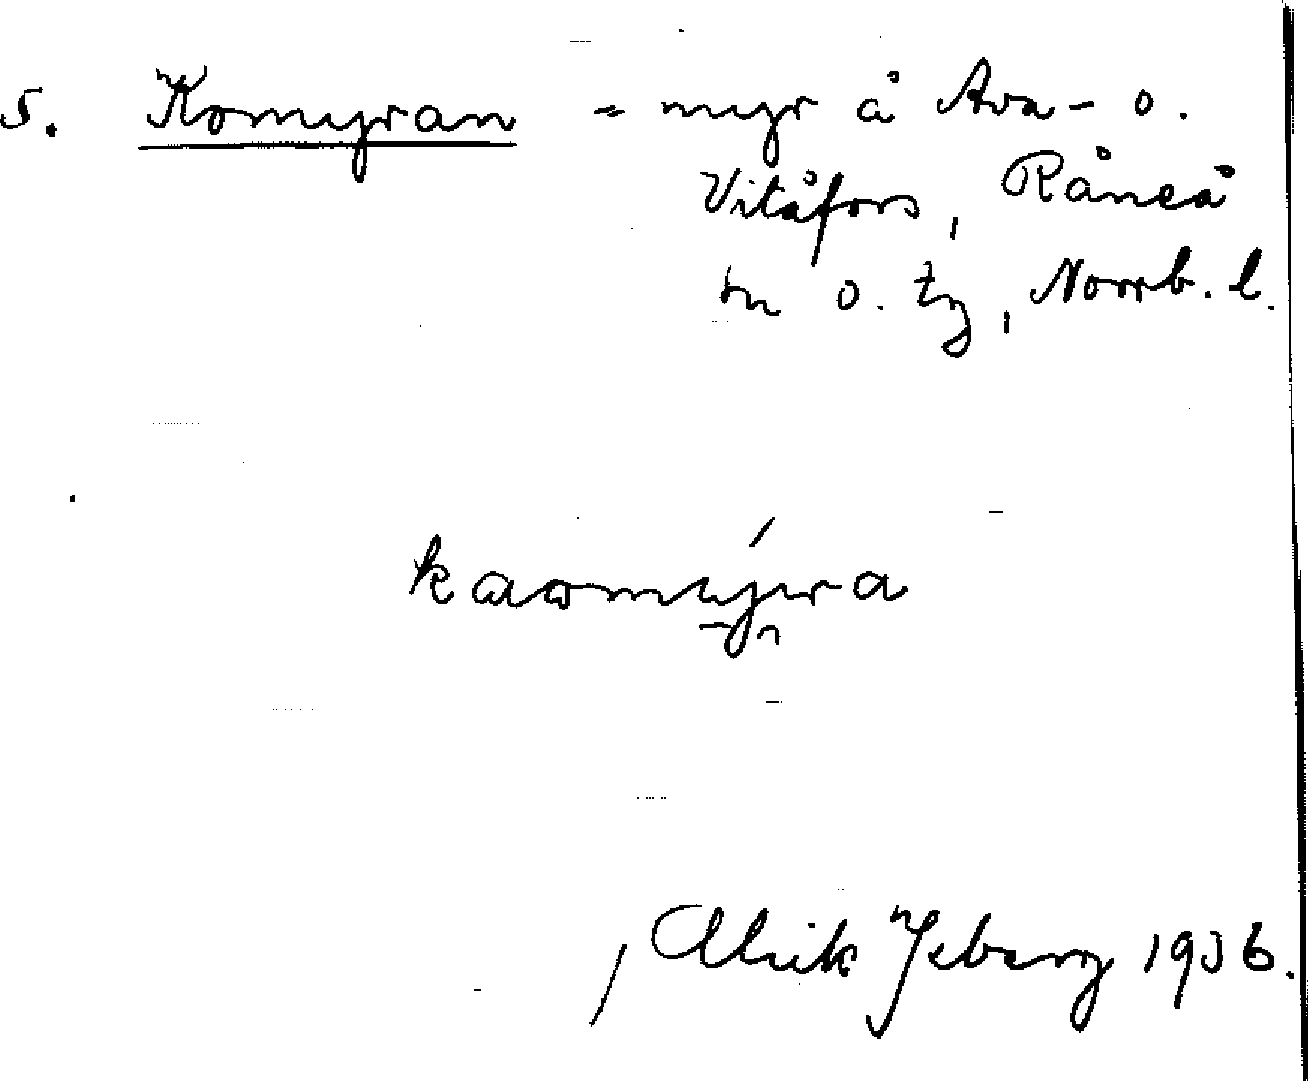 5. Komyran = myr å Ava- o.
Vitåfors, Råneå
sn o. tg, Norrb. l.
Ulrik Jeberg 1936.